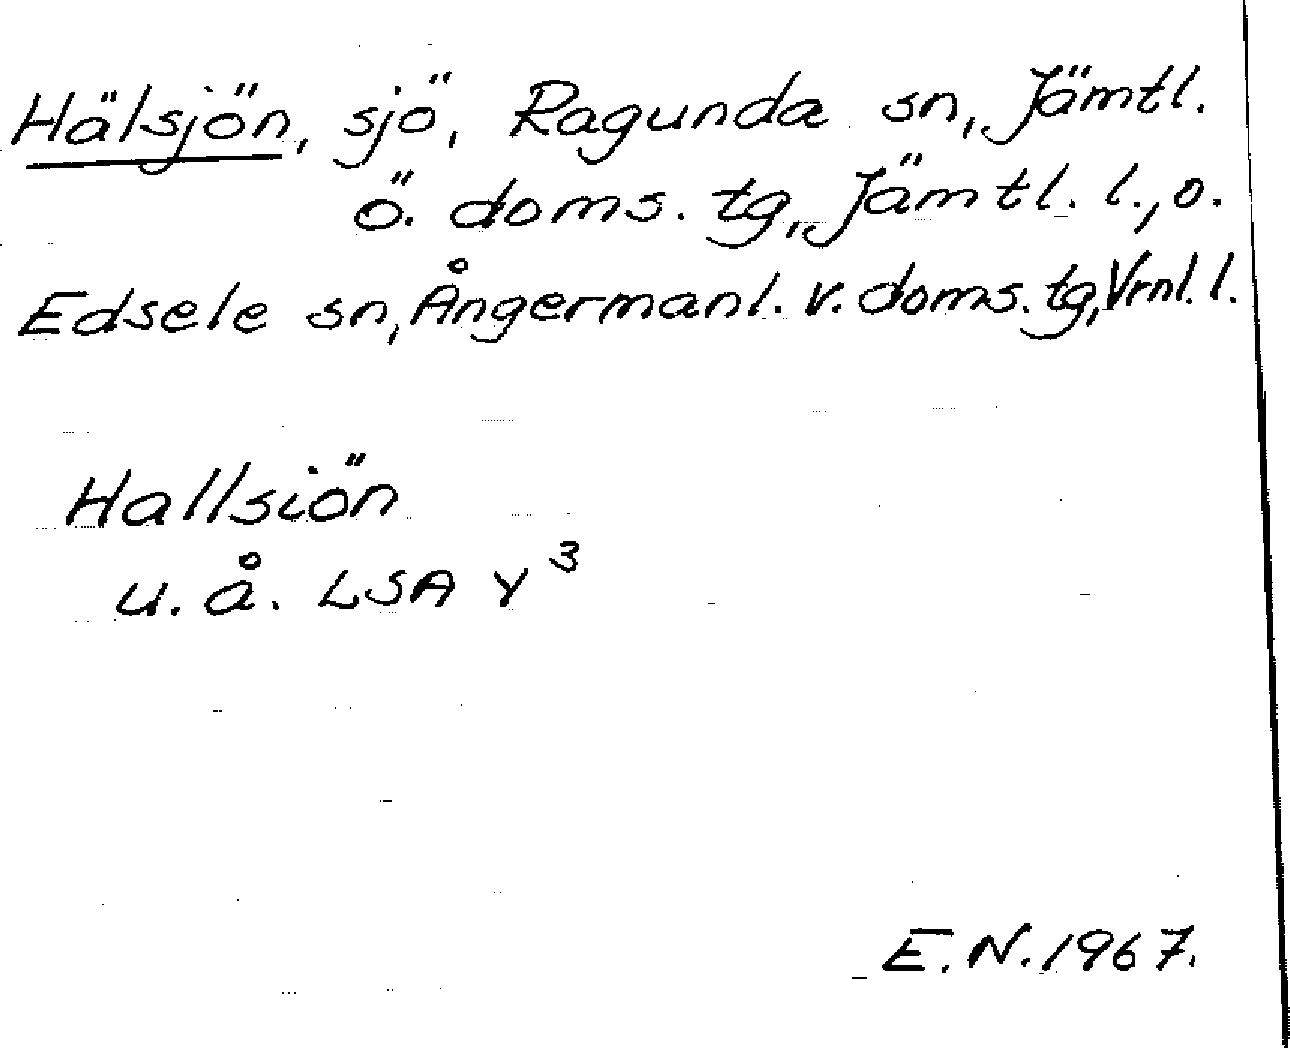 Hälsjön, sjö, Ragunda sn, Jämtl.
ö. doms. tg, Jämtl. l., o.
Edsele sn, Ångermanl. v. doms. tg, Vrnl. l.
Hallsiön
u. å. LSA Y 3
E. N. 1967.